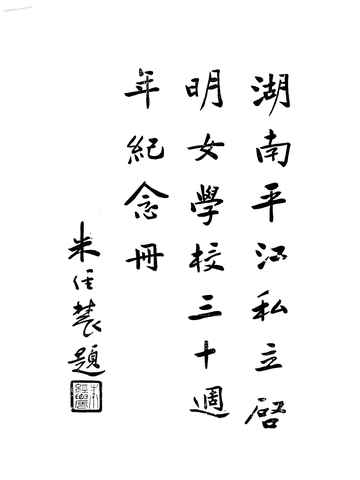 湖南平江私立啓
明女學校三十週
年紀念冊
朱經農題
朱經農